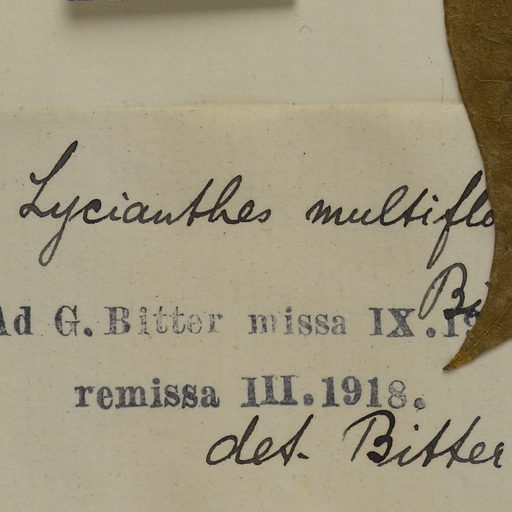 Lycianthes multiflo
Bi
Ad G. Bitter missa IX. 19
remissa III. 1918.
det. Bitter